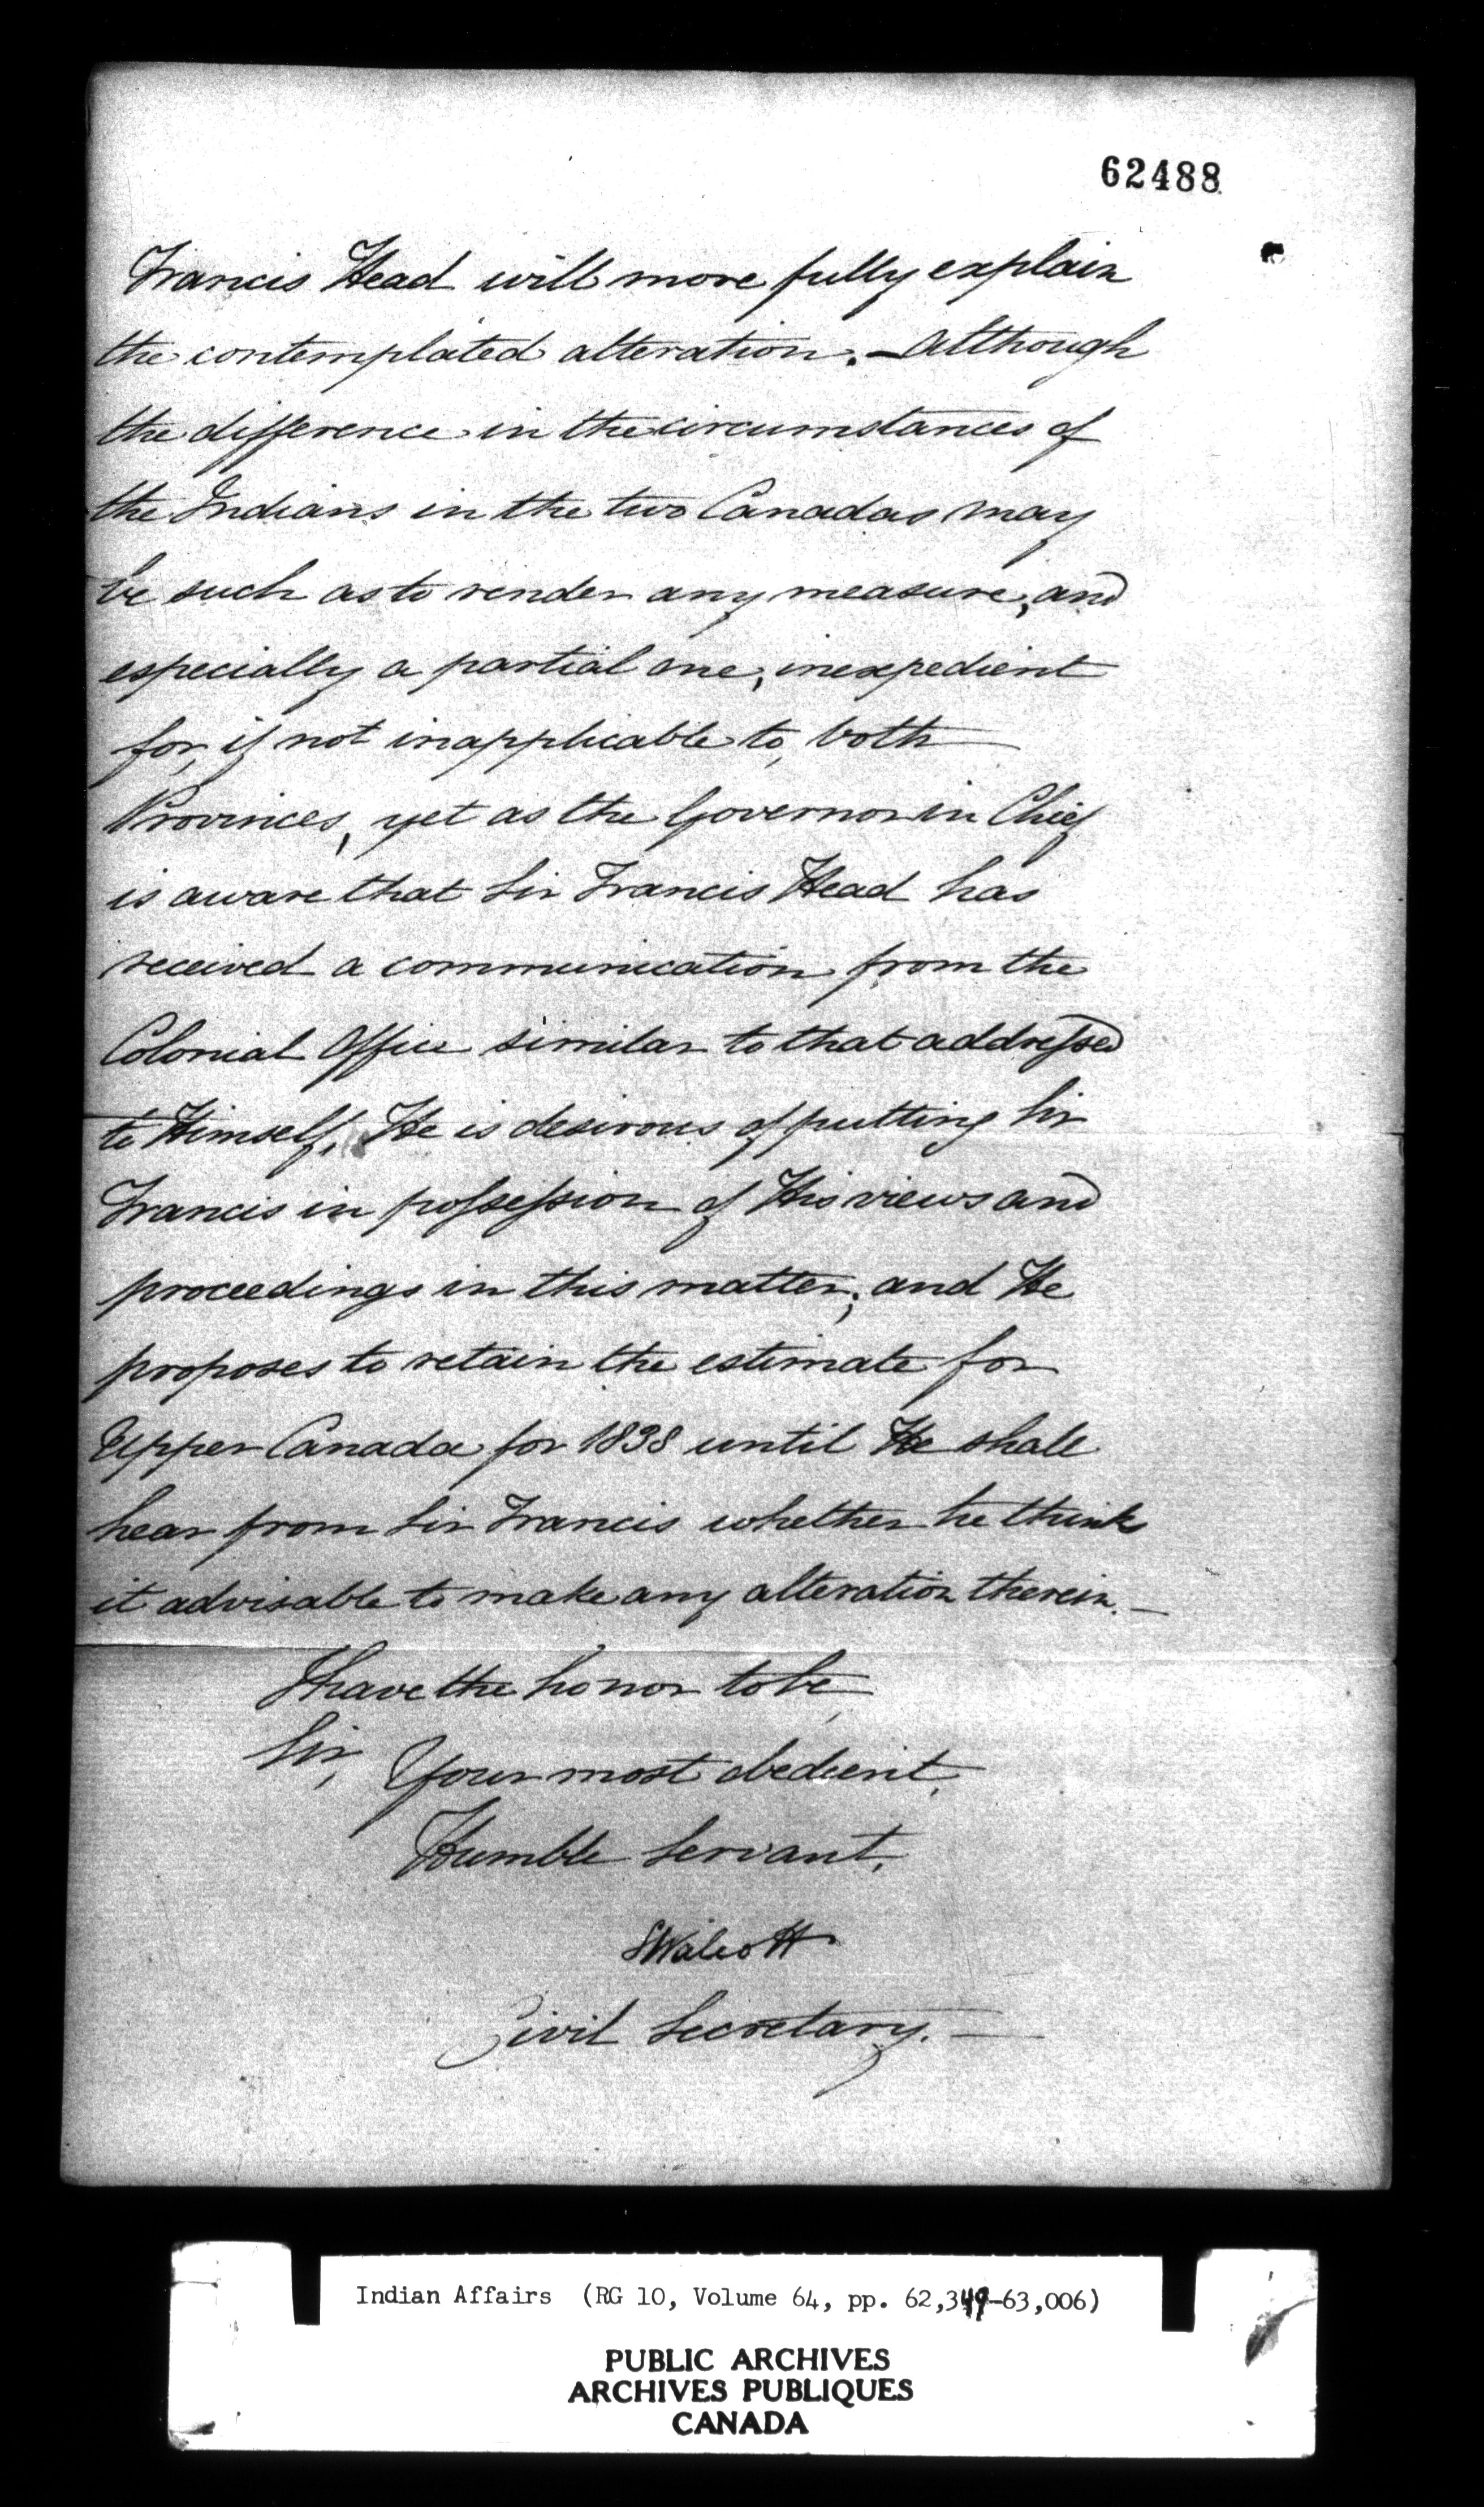 62488
Francis Head will more fully explain
the contemplated alteration. — Although
the difference in the circumstances of
the Indians in the two Canadas may
be such as to render any measure, and
especially a partial one, inexpedient
for, if not inapplicable to, both
Provinces, yet as the Governor in Chief
is aware that Sir Francis Head has
received a communication from the
Colonial Office similar to that addressed
to Himself, He is desirous of putting Sir
Francis in possession of His views and
proceedings in this matter; and He
proposes to retain the estimate for
Upper Canada for 1838 until He shall
hear from Sir Francis whether he thinks
it advisable to make any alteration therein. —
I have the honor to be
Sir,
Your most obedient,
Humble Servant,
S Walcott
Civil Secretary. —
Indian Affairs (RG 10, Volume 64, pp. 62,349-63,006)
PUBLIC ARCHIVES
ARCHIVES PUBLIQUES
CANADA